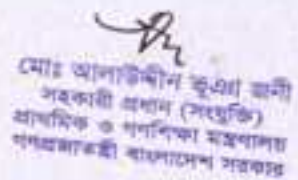 মোঃ আলাউদ্দীন ভূঞা জনী
সহকারী প্রধান (সংযুক্তি)
প্রাথমিক ও গণশিক্ষা মন্ত্রণালয়
গণপ্রজাতন্ত্রী বাংলাদেশ সরকার